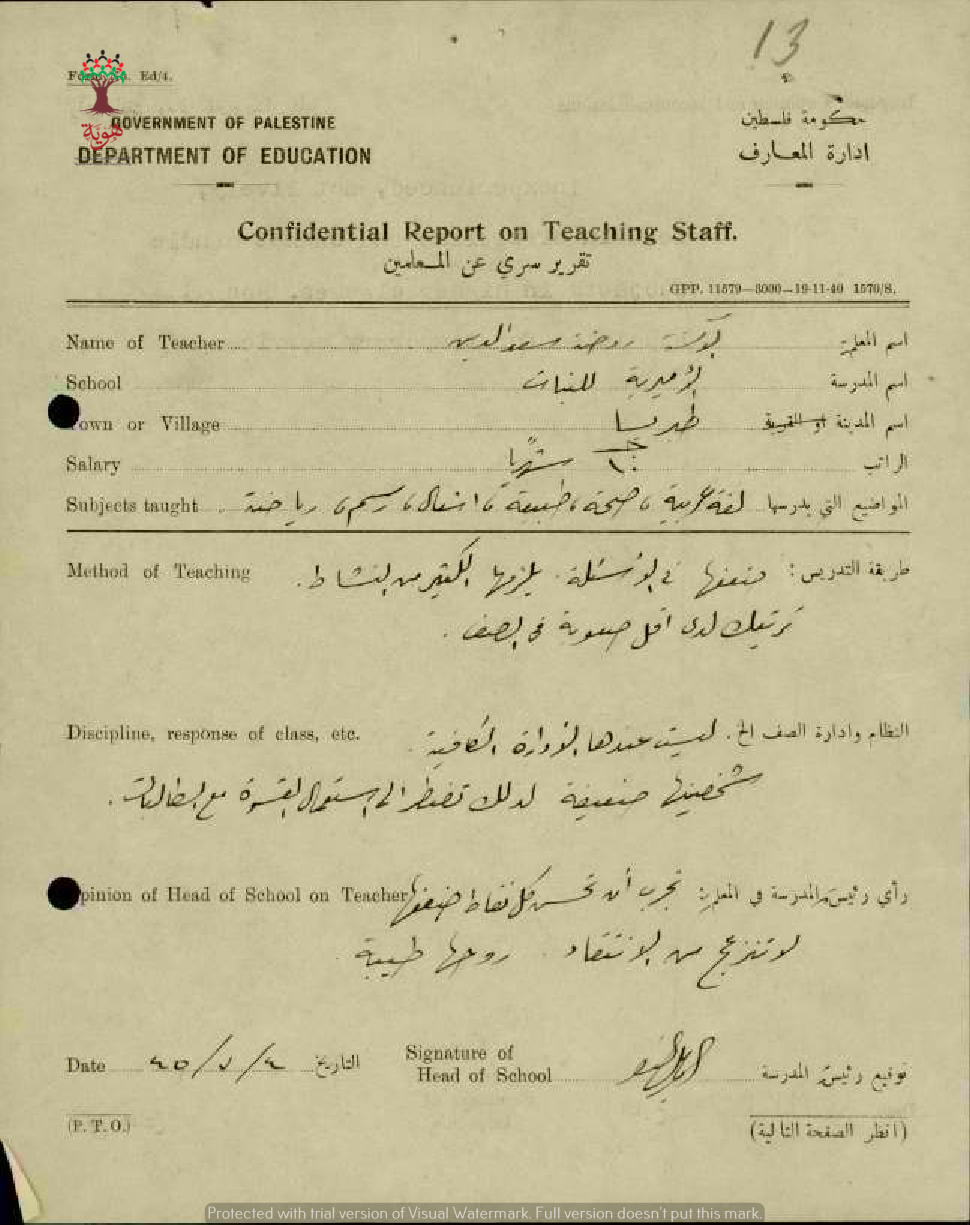 13
Form No. Ed/4.
هوية
GOVERNMENT OF PALESTINE
حكومة فلسطين
DEPARTMENT OF EDUCATION
ادارة المعارف
Confidential Report on Teaching Staff.
تقرير سري عن المعلمين
GPP. 11579—3000—19-11-40 1570/S.
Name of Teacher
الآنسة روضة سعد الدين
اسم المعلمة
School
الأميرية للبنات
اسم المدرسة
Town or Village
طبريا
اسم المدينة او القرية
Salary
شهريا
الراتب
Subjects taught
لغة عربية، صحة، طبيعة، اشغال، رسم، رياضة
المواضيع التي يدرسها
Method of Teaching
طريقة التدريس: ضعفها في الأسئلة. يلزمها الكثير من النشاط.
ترتبك لدى أقل صعوبة في الصف.
Discipline, response of class, etc.
النظام وادارة الصف الخ. ليست عندها الإدارة الكافية.
شخصيتها ضعيفة لذلك تضطر الى استعمال القسوة مع الطالبات.
Opinion of Head of School on Teacher
رأي رئيسة المدرسة في المعلمة: تجرب أن تحسن كل نقاط ضعفها
لا تنزعج من الانتقاد. روحها طيبة.
Date
التاريخ
Signature of
Head of School
توقيع رئيس المدرسة
(P. T. O.)
(انظر الصفحة التالية)
Protected with trial version of Visual Watermark. Full version doesn't put this mark.